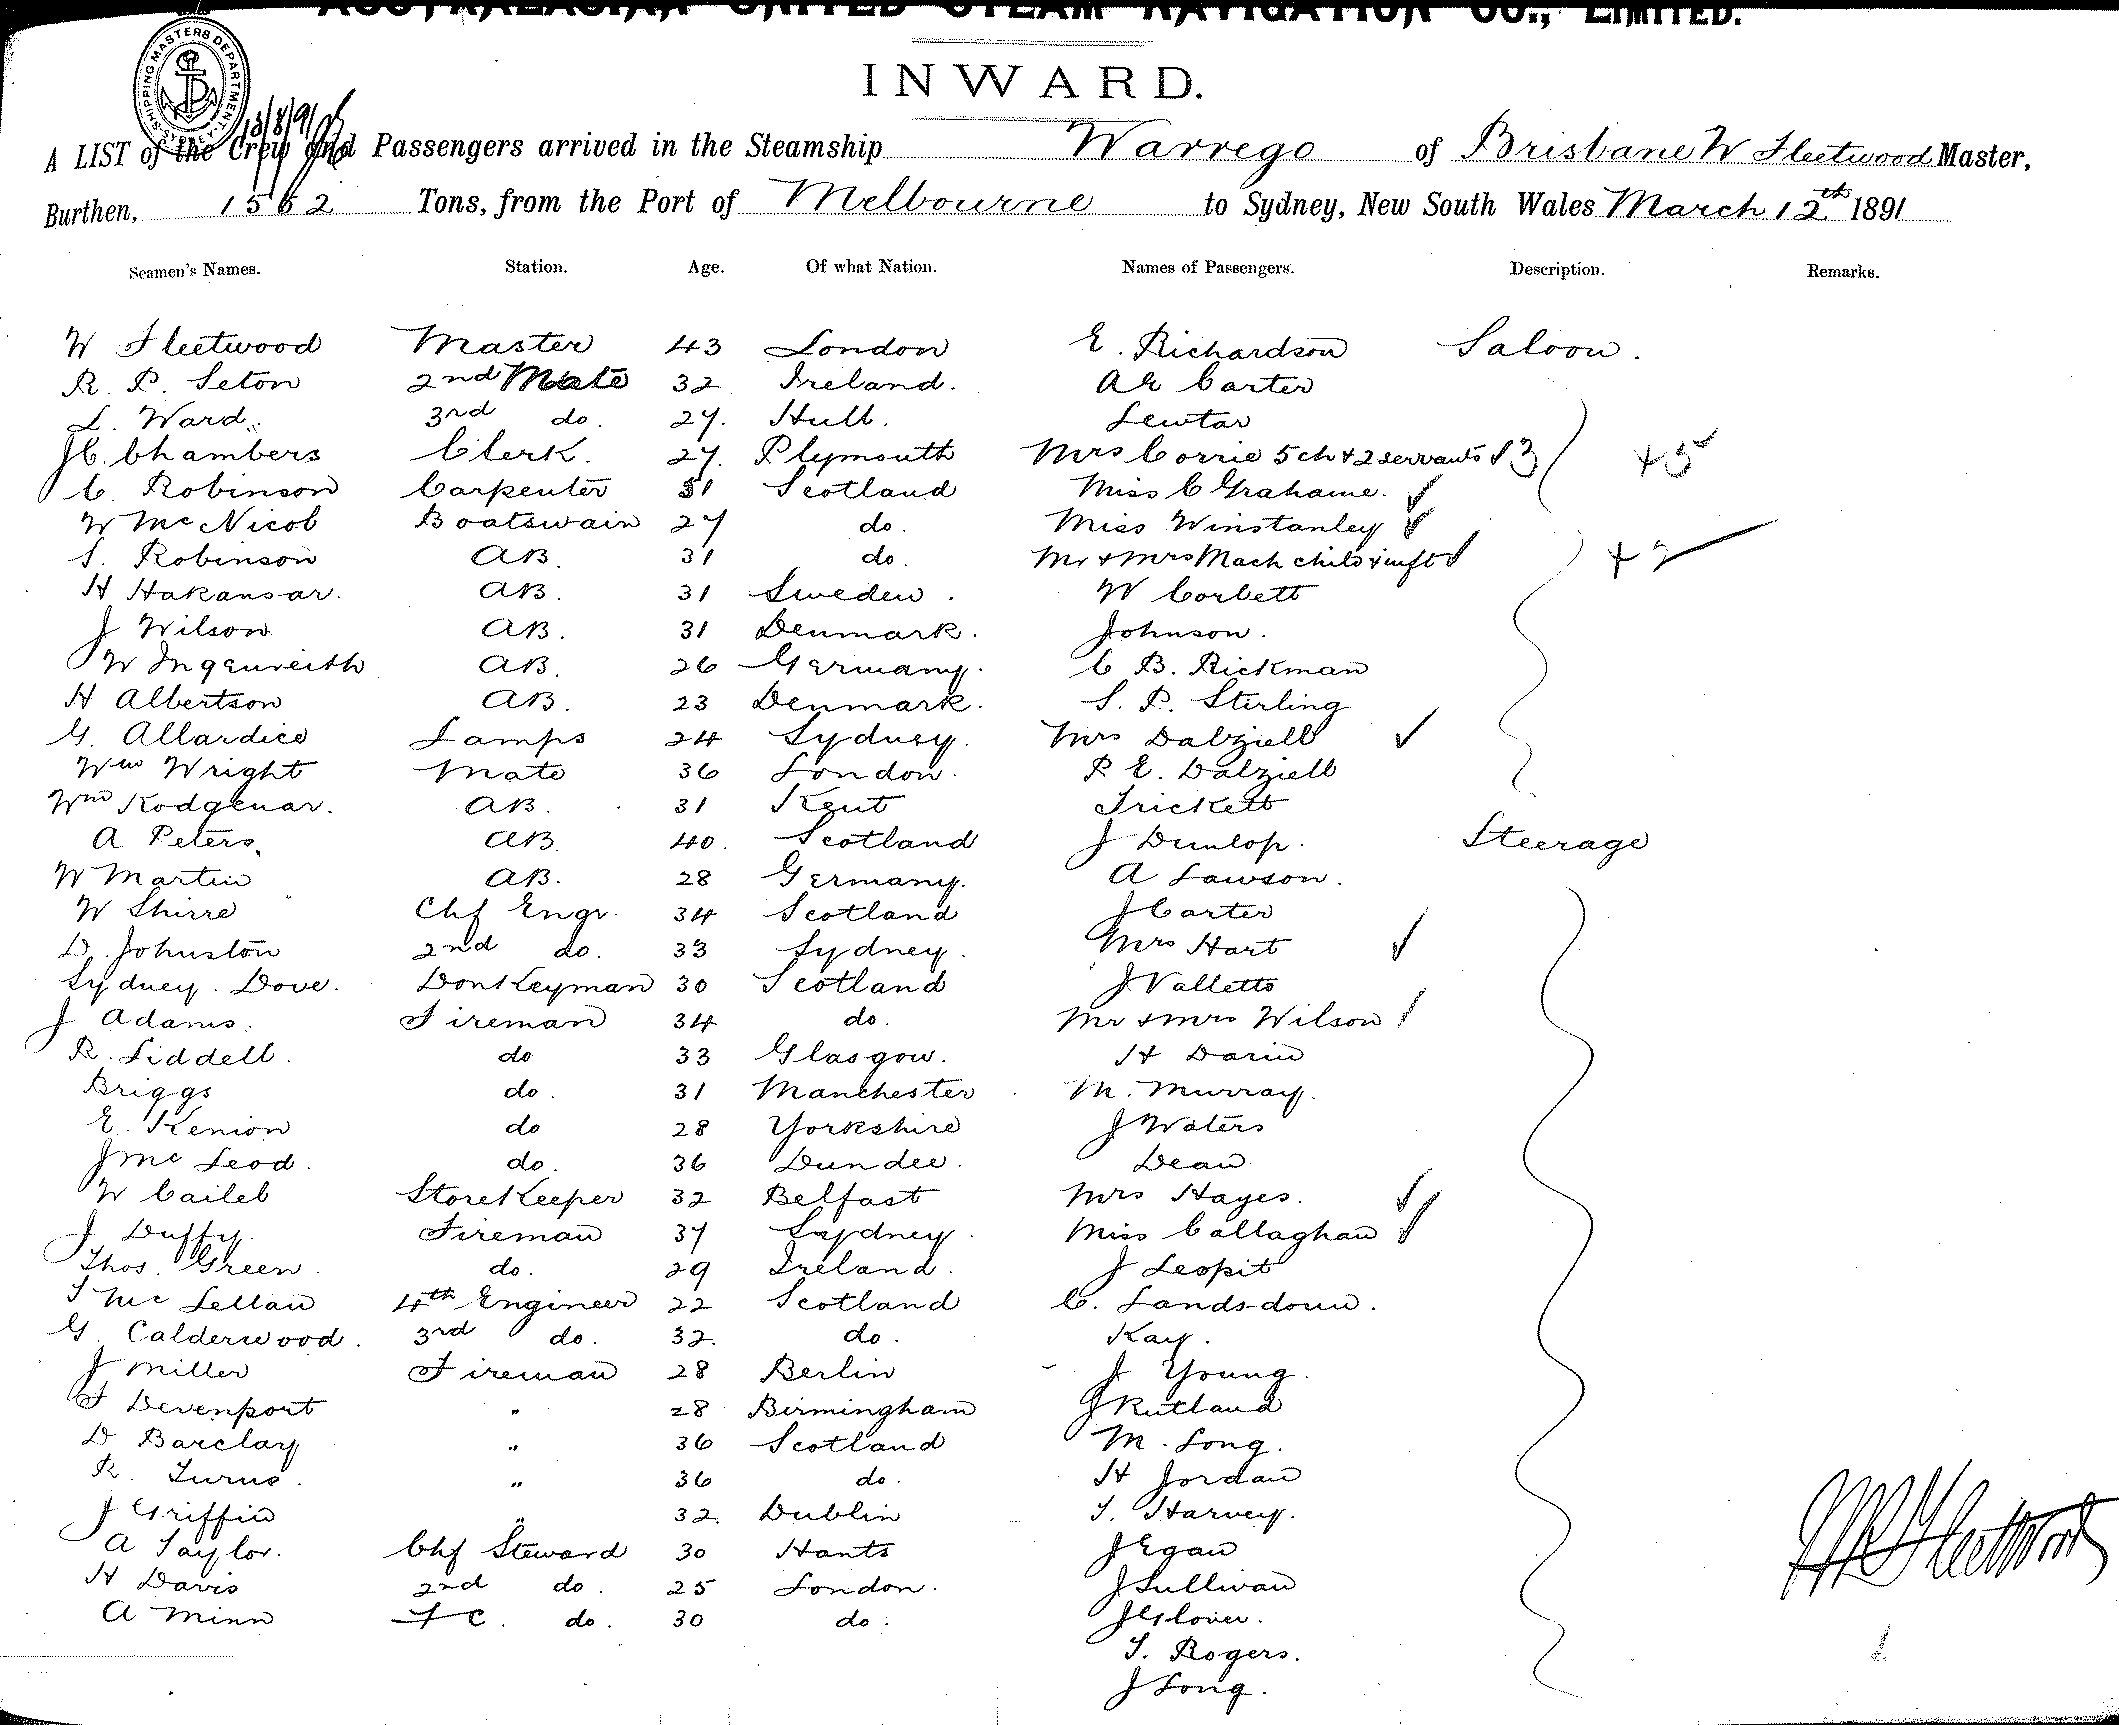 AUSTRALASIAN UNITED STEAM NAVIGATION CO., LIMITED.
INWARD.
SHIPPING MASTERS DEPARTMENT
A LIST of the Crew and Passengers arrived in the Steamship Warrego of Brisbane W Fleetwood Master,
Burthen, 1562 Tons, from the Port of Melbourne to Sydney, New South Wales March 12th 1891
Seamen's Names. Station. Age. Of what Nation. Names of Passengers. Description. Remarks.
W Fleetwood Master 43 London E. Richardson Saloon.
R. P. Seton 2nd Mate 32 Ireland. A E Carter
L. Ward. 3rd do. 27. Hull. Lewtas
J C. Chambers Clerk. 27. Plymouth Mrs Corrie 5 ch + 2 servants
C. Robinson Carpenter 31 Scotland Miss C Grahame.
W McNicol Boatswain 27 do. Miss Winstanley
S. Robinson AB. 31 do. Mr + Mrs Mach child + inft
H Hakansar. AB. 31 Sweden. W Corbett
J Wilson AB. 31 Denmark. Johnson.
W AB. 26 Germany. C B. Rickman
H Albertson AB. 23 Denmark. S. P. Stirling
G. Allardice Lamps 24 Sydney. Mrs Dalziell
Wm Wright Mate 36 London. P E. Dalziell
Wm AB. 31 Kent Trickett
A Peters. AB. 40. Scotland J Dunlop. Steerage
W Martin AB. 28 Germany. A Lawson.
W Shirre Chf Engr. 34 Scotland J Carter
D. Johnston 2nd do. 33 Sydney. Mrs Hart
Sydney. Dove. Donkeyman 30 Scotland J Valletto
J Adams. Fireman 34 do. Mr + Mrs Wilson
R. Liddell. do 33 Glasgow. H
Briggs do. 31 Manchester M. Murray.
E. Kenion do 28 Yorkshire J Waters
J McLeod. do. 36 Dundee. Dean
W Caileb Storekeeper 32 Belfast Mrs Hayes.
J. Duffy. Fireman 37 Sydney. Miss Callaghan
Thos. Green. do. 29 Ireland. J Leopit
J McLellan 4th Engineer 22 Scotland C. Landsdoun.
G. Calderwood. 3rd do. 32. do. Kay.
J Miller Fireman 28 Berlin J Young.
J Devenport " 28 Birmingham J Rutland
D Barclay " 36 Scotland M. Long.
R. " 36 do. H Jordan
J Griffin " 32. Dublin T. Harvey.
A Taylor. Chf Steward 30 Hants J Egan
H Davis 2nd do. 25 London. J Sullivan
A Minn F C. do. 30 do. J Glover.
T. Rogers.
J Long.